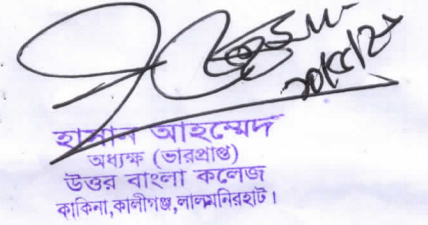 হাসান আহম্মেদ
অধ্যক্ষ (ভারপ্রাপ্ত)
উত্তর বাংলা কলেজ
কাকিনা,কালীগঞ্জ,লালমনিরহাট।